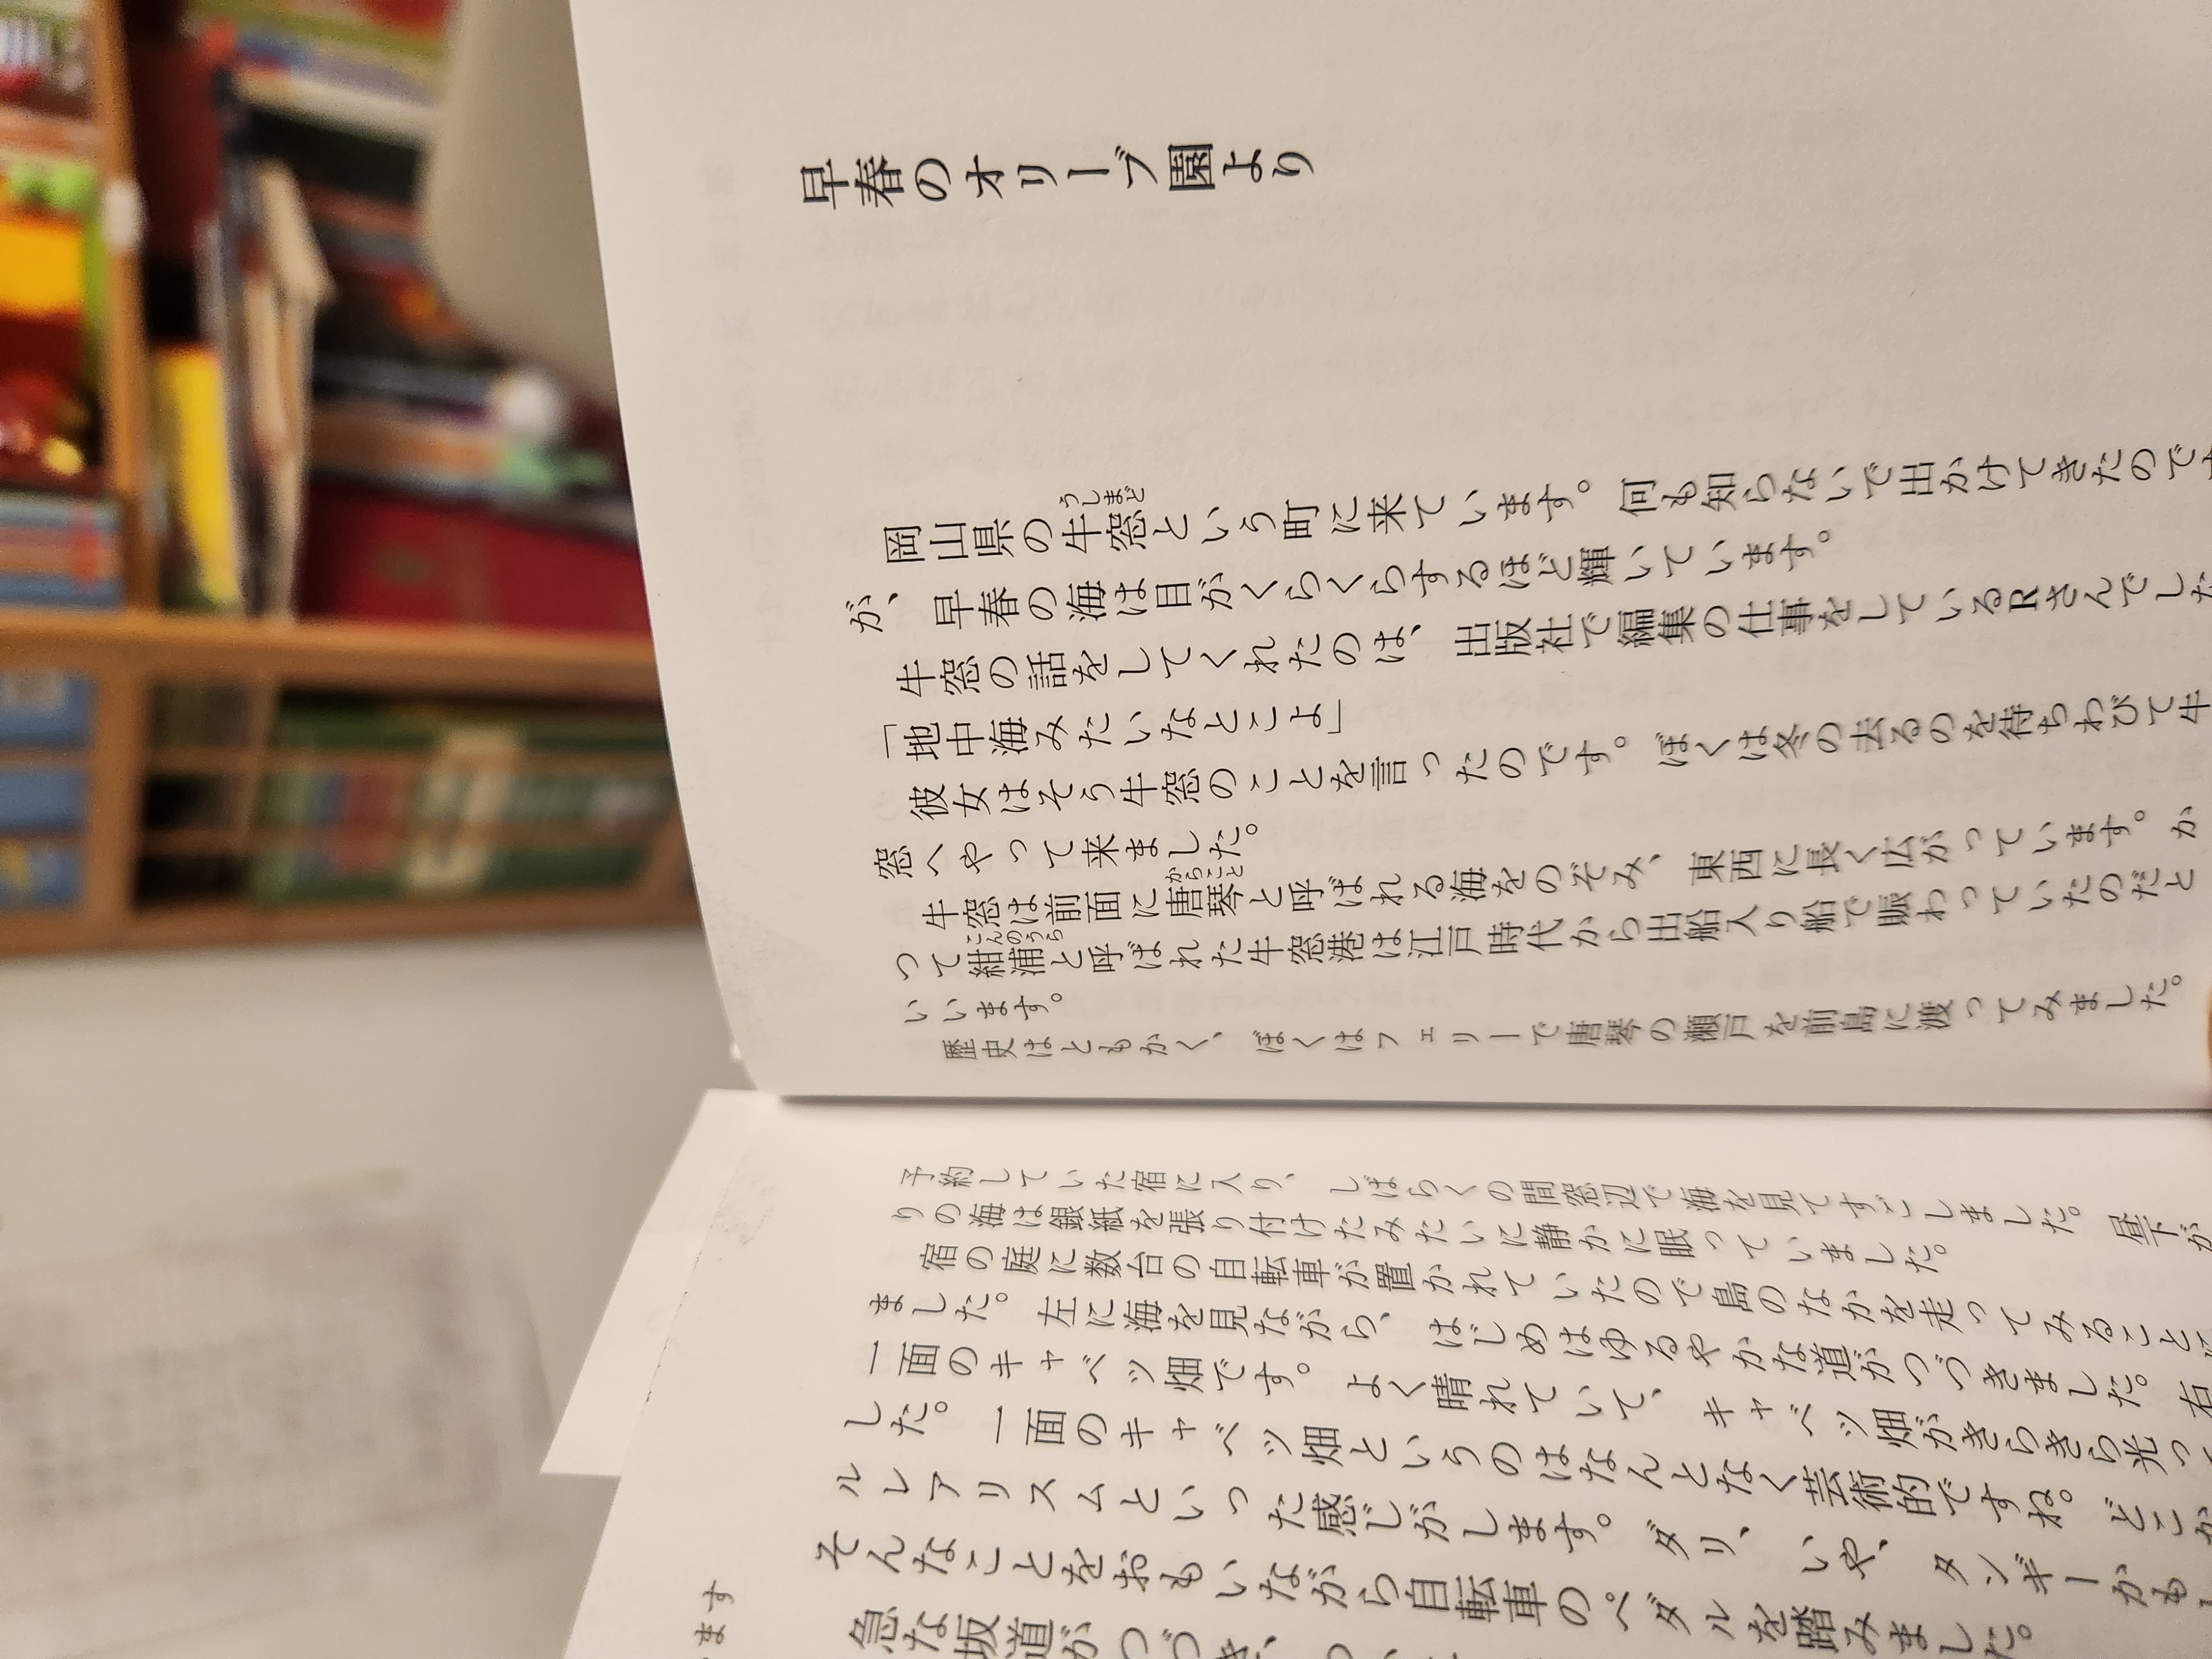 早春のオリーブ園より
岡山県の牛窓という町に来ています。何も知らないで出かけてきたのです
うしまど
が、早春の海は目がくらくらするほど輝いています。
牛窓の話をしてくれたのは、出版社で編集の仕事をしているRさんでした
「地中海みたいなとこよ」
彼女はそう牛窓のことを言ったのです。ぼくは冬の去るのを待ちわびて牛
窓へやって来ました。
牛窓は前面に唐琴と呼ばれる海をのぞみ、東西に長く広がっています。か
からこと
つて紺浦と呼ばれた牛窓港は江戸時代から出船入り船で賑わっていたのだと
こんのうら
いいます。
歴史はともかく、ぼくはフェリーで唐琴の瀬戸を前島に渡ってみました。
予約していた宿に入り、しばらくの間窓辺で海を見てすごしました。昼下が
りの海は銀紙を張り付けたみたいに静かに眠っていました。
宿の庭に数台の自転車が置かれていたので島のなかを走ってみること
ました。左に海を見ながら、はじめはゆるやかな道がつづきました。右
一面のキャベツ畑です。よく晴れていて、キャベツ畑がきらきら光っ
した。一面のキャベツ畑というのはなんとなく芸術的ですね。どこか
ルレアリスムといった感じがします。ダリ、いや、タンギーかも
そんなことをおもいながら自転車のペダルを踏みました。
急な坂道がつづき、
ます